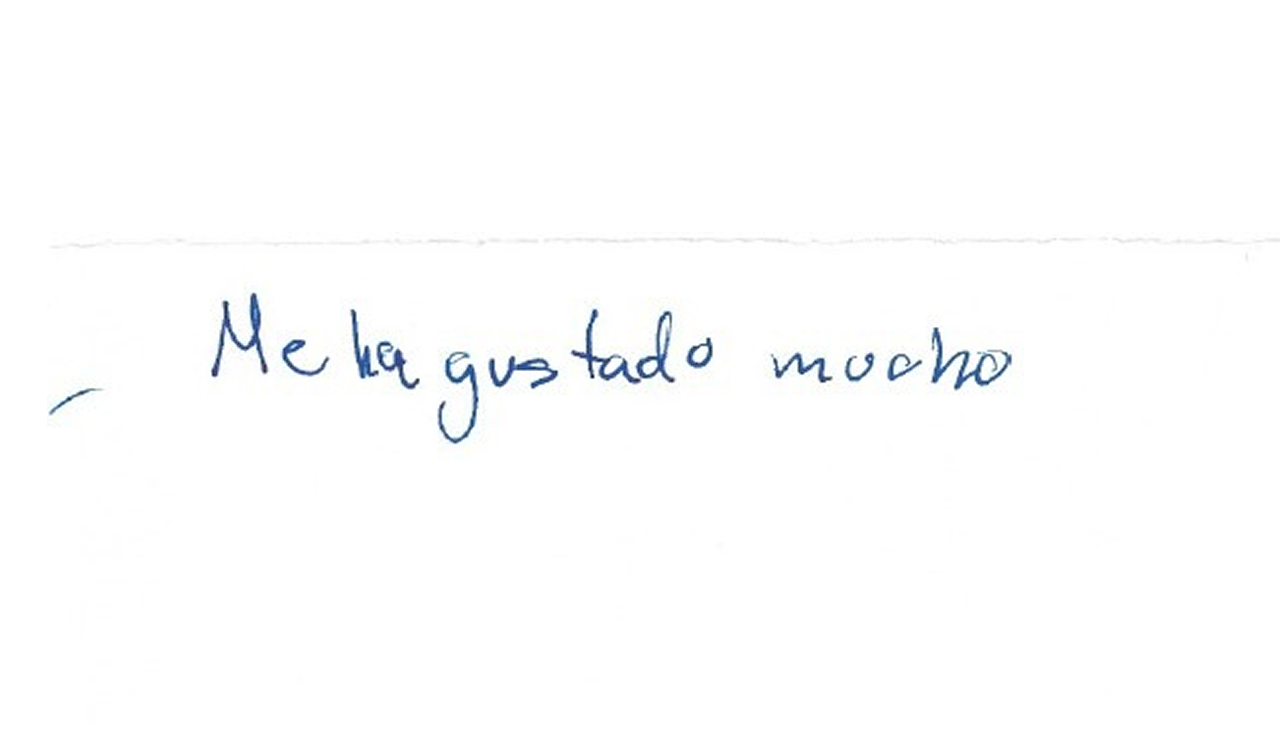 Me ha gustado mucho